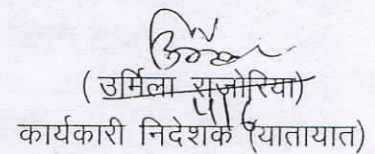 ( उर्मिला राजोरिया)
कार्यकारी निदेशक (यातायात)